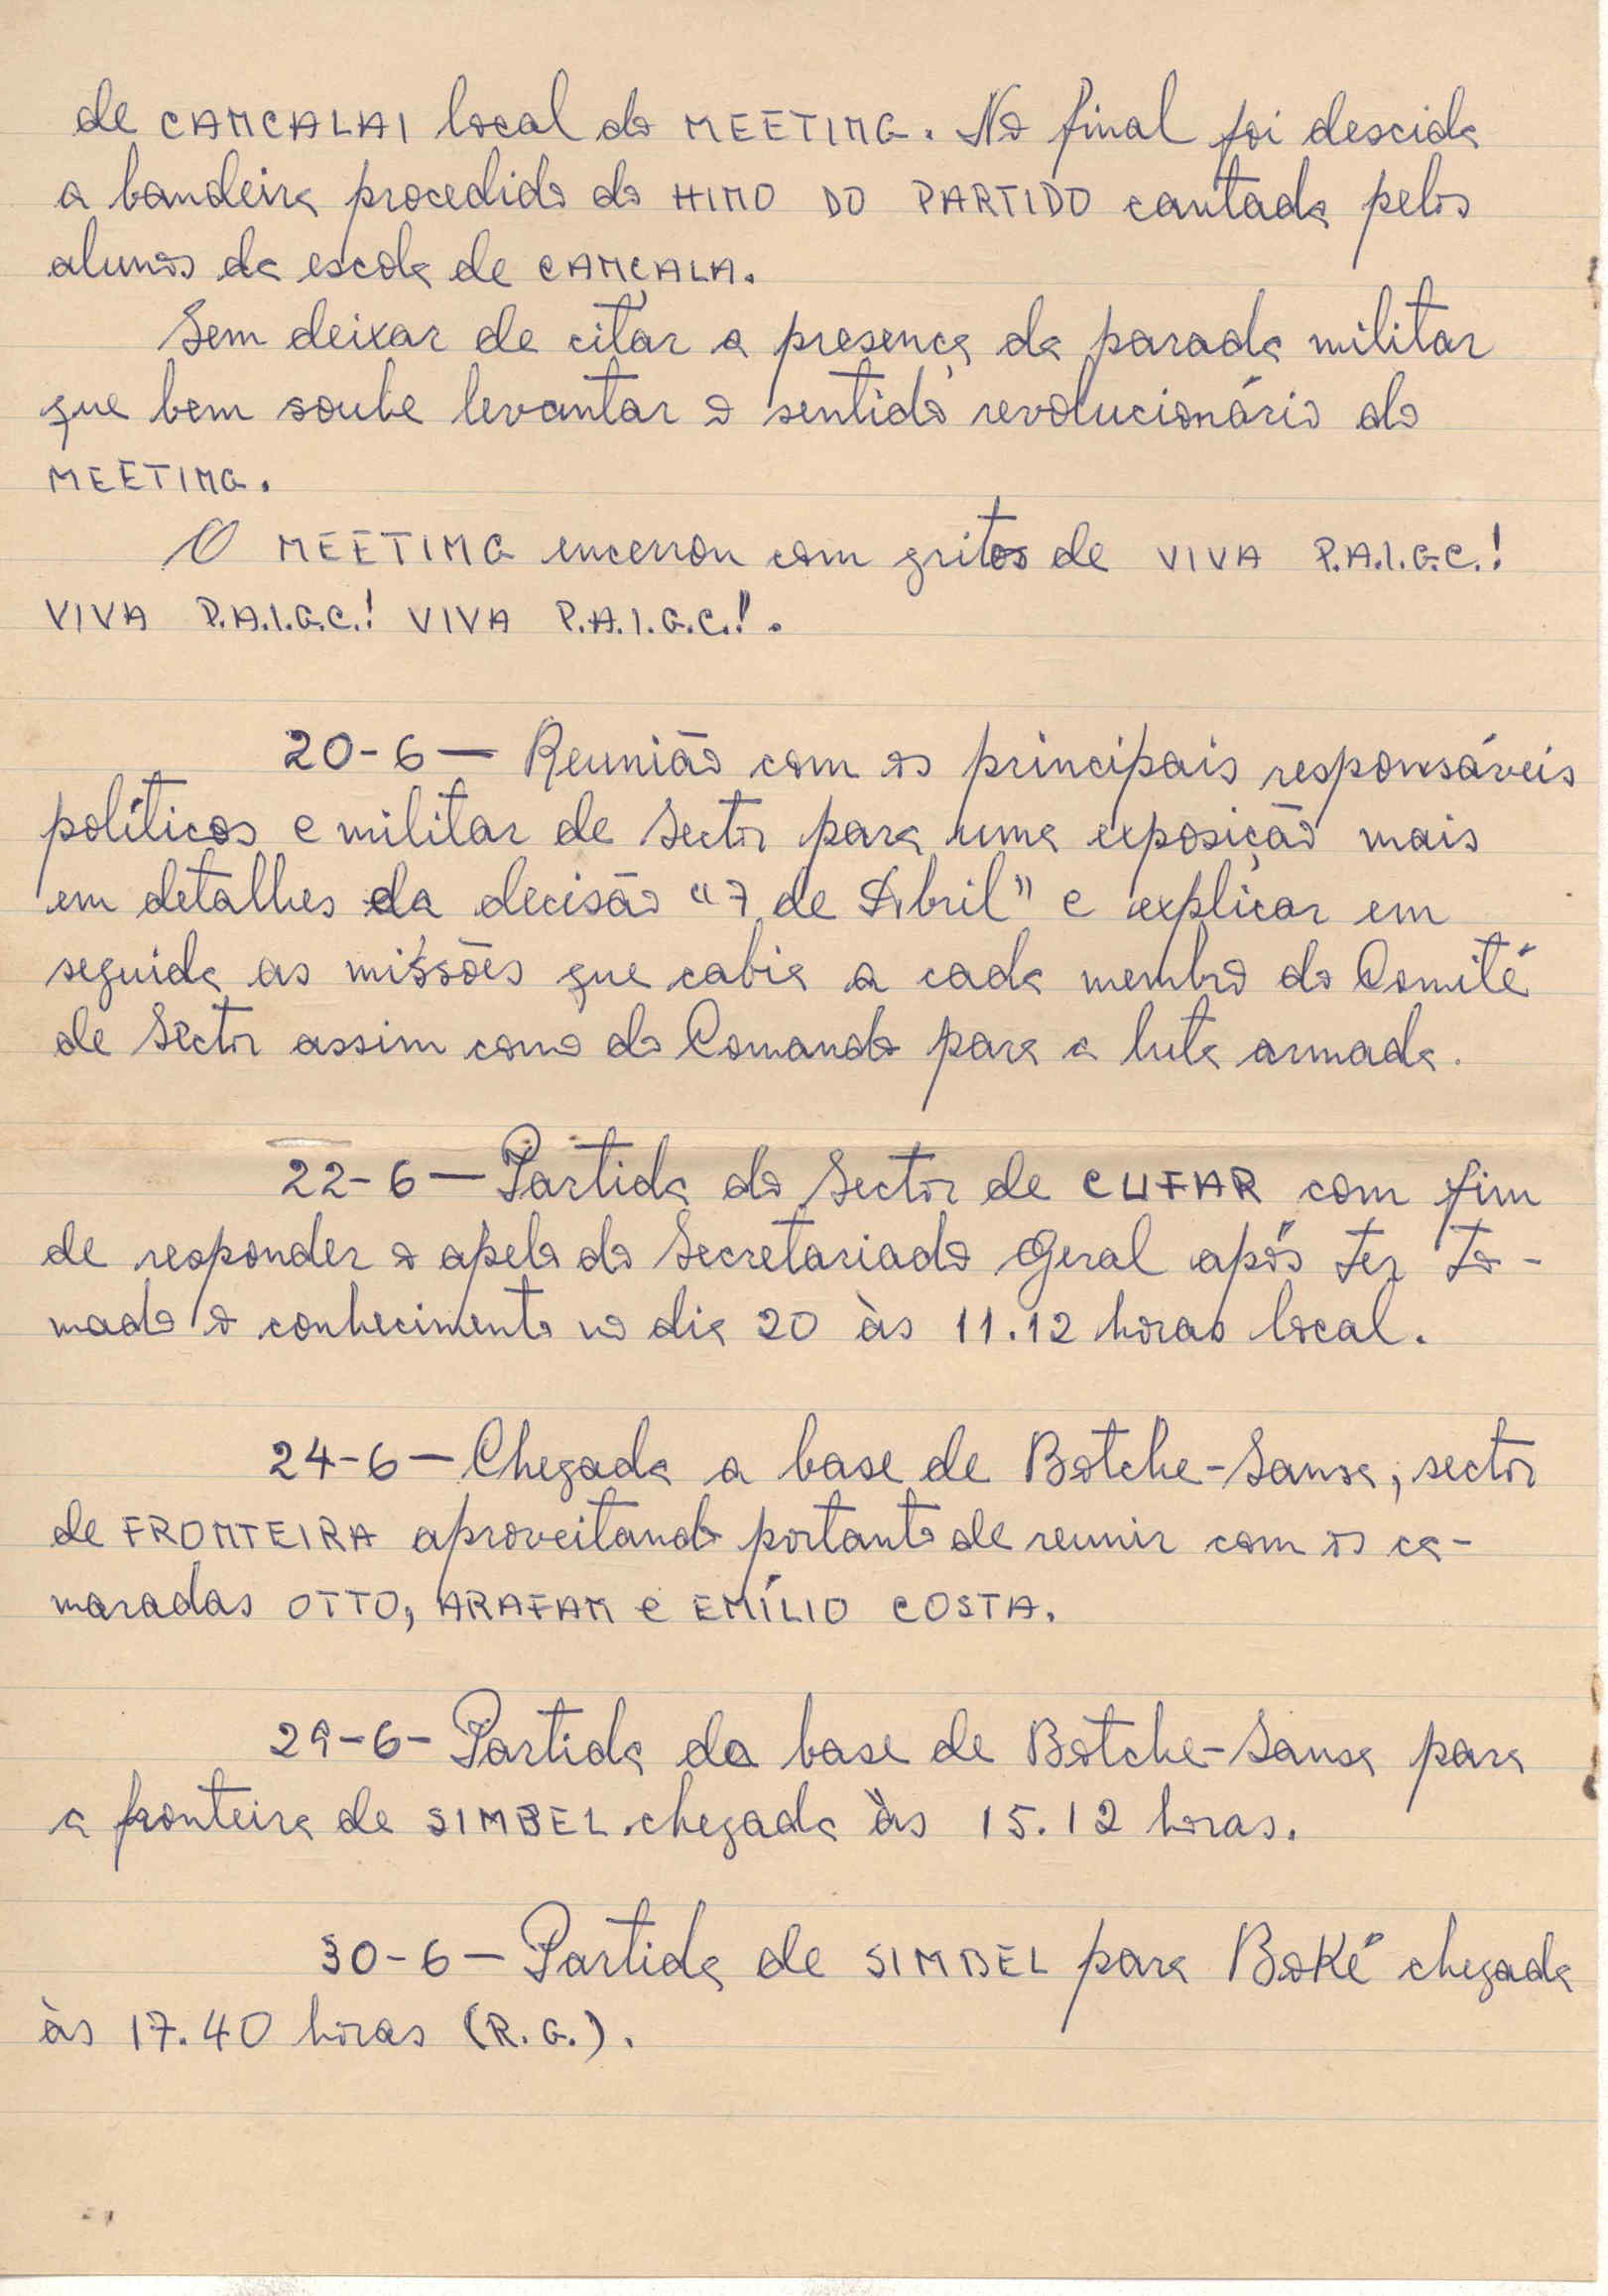 de CANCALAI local do MEETING. No final foi descida
a bandeira procedido do HINO DO PARTIDO cantada pelos
alunos da escola de CANÇALA.
Sem deixar de citar a presença da parada militar
que bem soube levantar o sentido revolucionário do
MEETING.
O MEETING encerrou com gritos de VIVA P.A.I.G.C.!
VIVA P.A.I.G.C.! VIVA P.A.I.G.C.!.
20-6— Reunião com os principais responsáveis
políticos e militar de Sector para uma exposição mais
em detalhes da decisão "7 de Abril" e explicar em
seguida as missões que cabia a cada membro do Comité
de Sector assim como do Comando para a luta armada.
22-6— Partida do Sector de CUFAR com fim
de responder o apelo do Secretariado Geral após ter to-
mado o conhecimento no dia 20 às 11.12 horas local.
24-6— Chegada a base de Botche-Sansa, sector
de FRONTEIRA aproveitando portanto de reunir com os ca-
maradas OTTO, ARAFAN e EMÍLIO COSTA.
29-6- Partida da base de Botche-Sansa para
a fronteira de SIMBEL.chegada às 15.12 horas.
30-6— Partida de SIMBEL para Boké chegada
às 17.40 horas (R.G.).